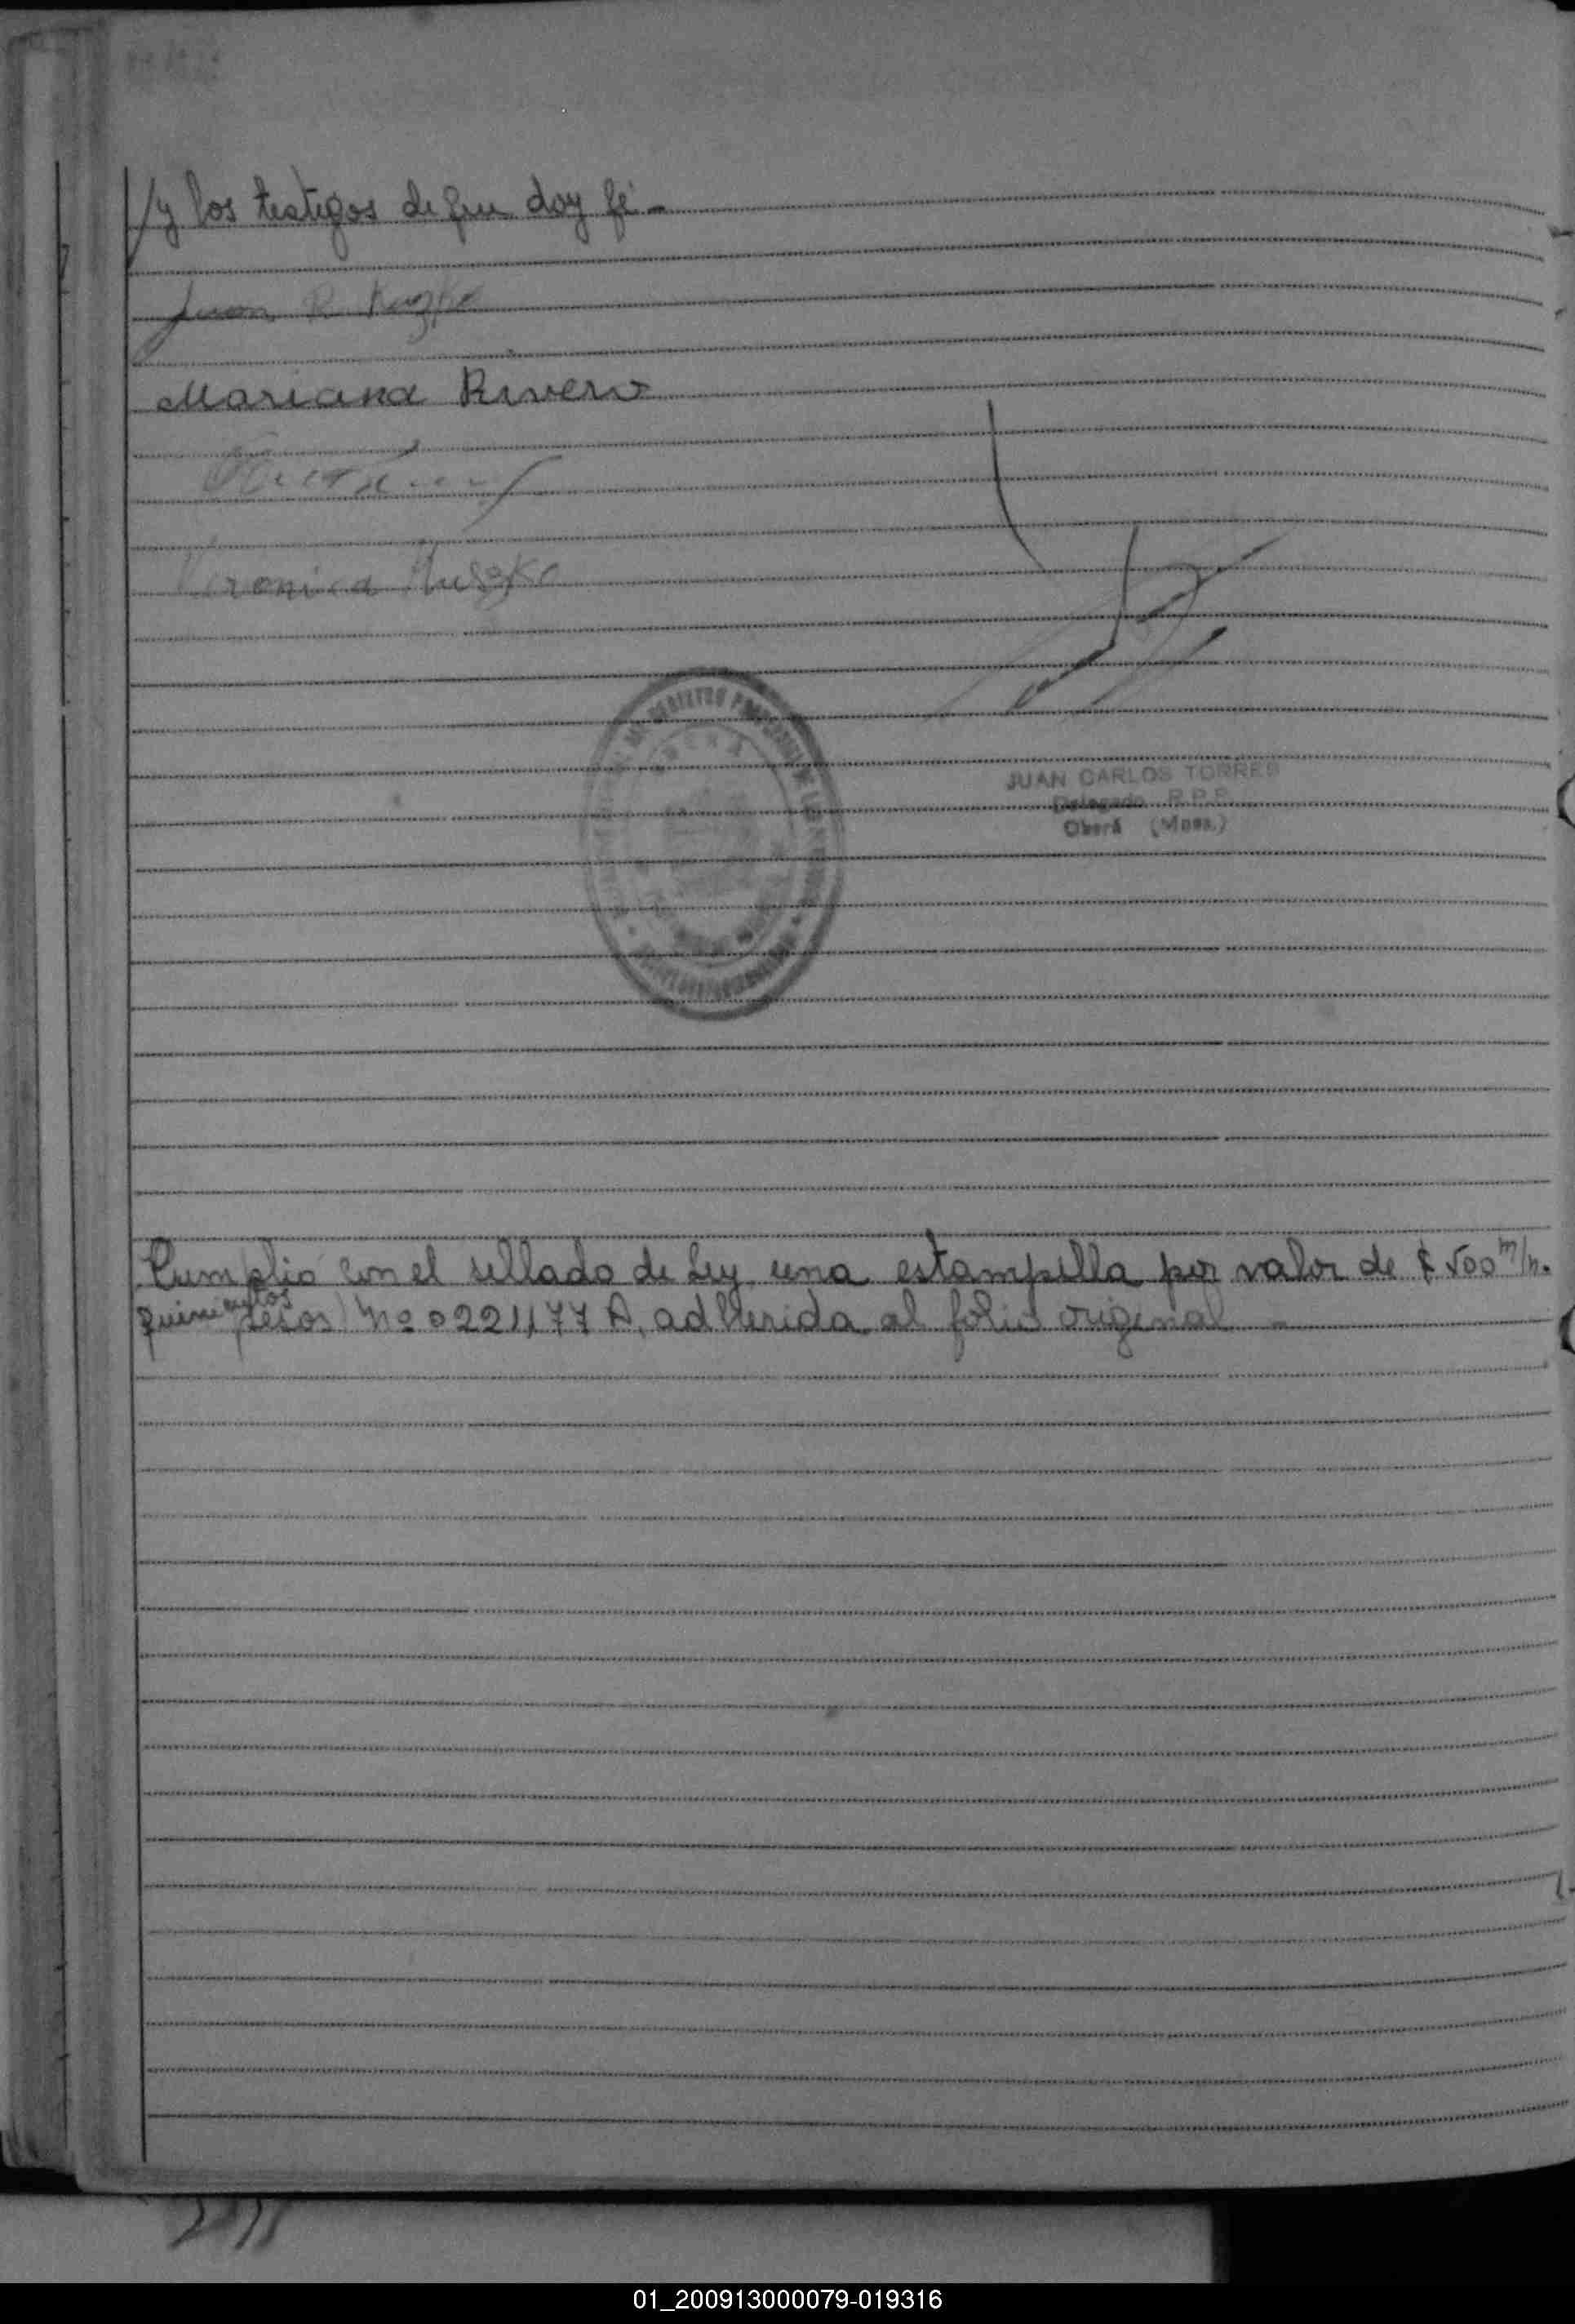 /y los testigos de que doy fé -
Juan R.
Mariana Rivero
Veronica Huszka
JUAN CARLOS TORRES
Delegado R.P.P.
Oberá (Mnes.)
Cumplió con el sellado de Ley, una estampilla por valor de $ 500 m/n.
quinientos pesos) Nº 0221177 A, adherida al folio original -
01_200913000079-019316